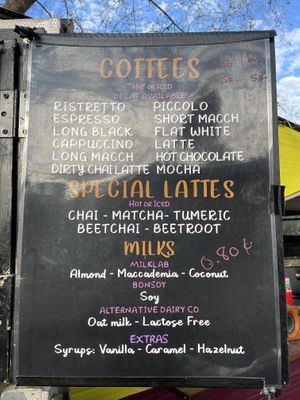 COFFEES
HOT OR ICED
DECAF AVAILABLE
RISTRETTO PICCOLO
ESPRESSO SHORT MACCH
LONG BLACK FLAT WHITE
CAPPUCCINO LATTE
LONG MACCH HOT CHOCOLATE
DIRTY CHAI LATTE MOCHA
SPECIAL LATTES
HOT OR ICED
CHAI - MATCHA- TUMERIC
BEETCHAI - BEETROOT
MILKS
0.80¢
MILKLAB
Almond - Maccademia - Coconut
BONSOY
Soy
ALTERNATIVE DAIRY CO
Oat milk - Lactose Free
EXTRAS
Syrups: Vanilla - Caramel - Hazelnut